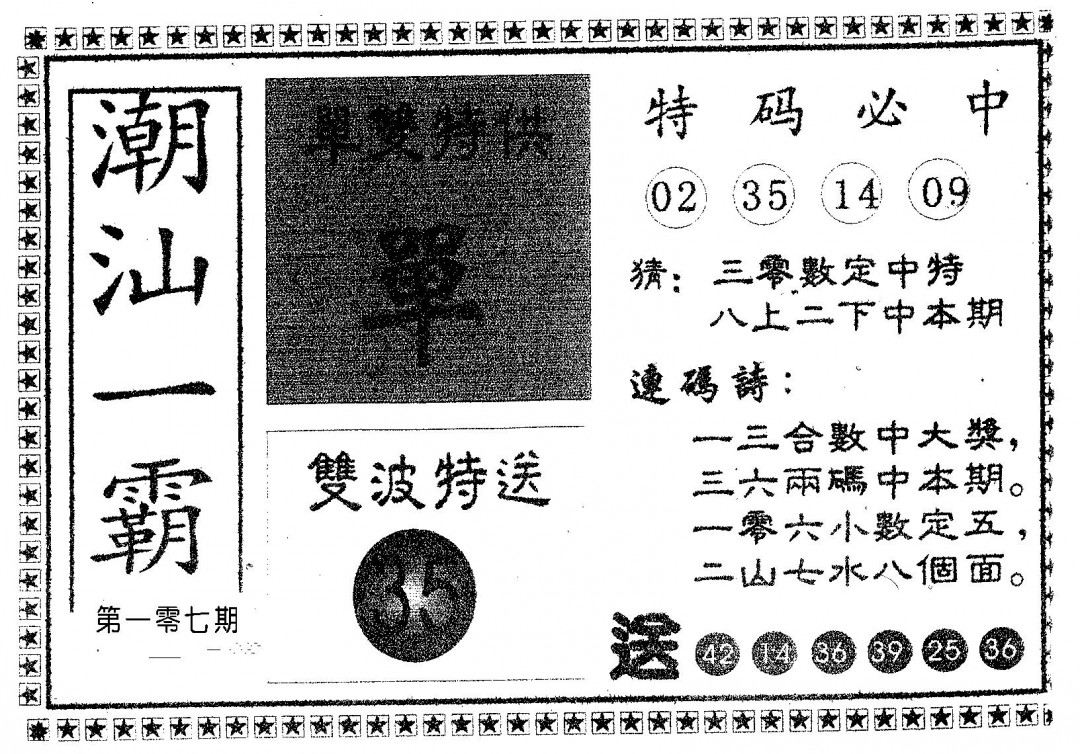 潮汕一霸
第一零七期
單雙特供
單
雙波特送
35
特码必中
02 35 14 09
猜：三零數定中特
八上二下中本期
連碼詩：
一三合數中大獎，
三六兩碼中本期。
一零六小數定五，
二山七水八個面。
送 42 14 36 39 25 36